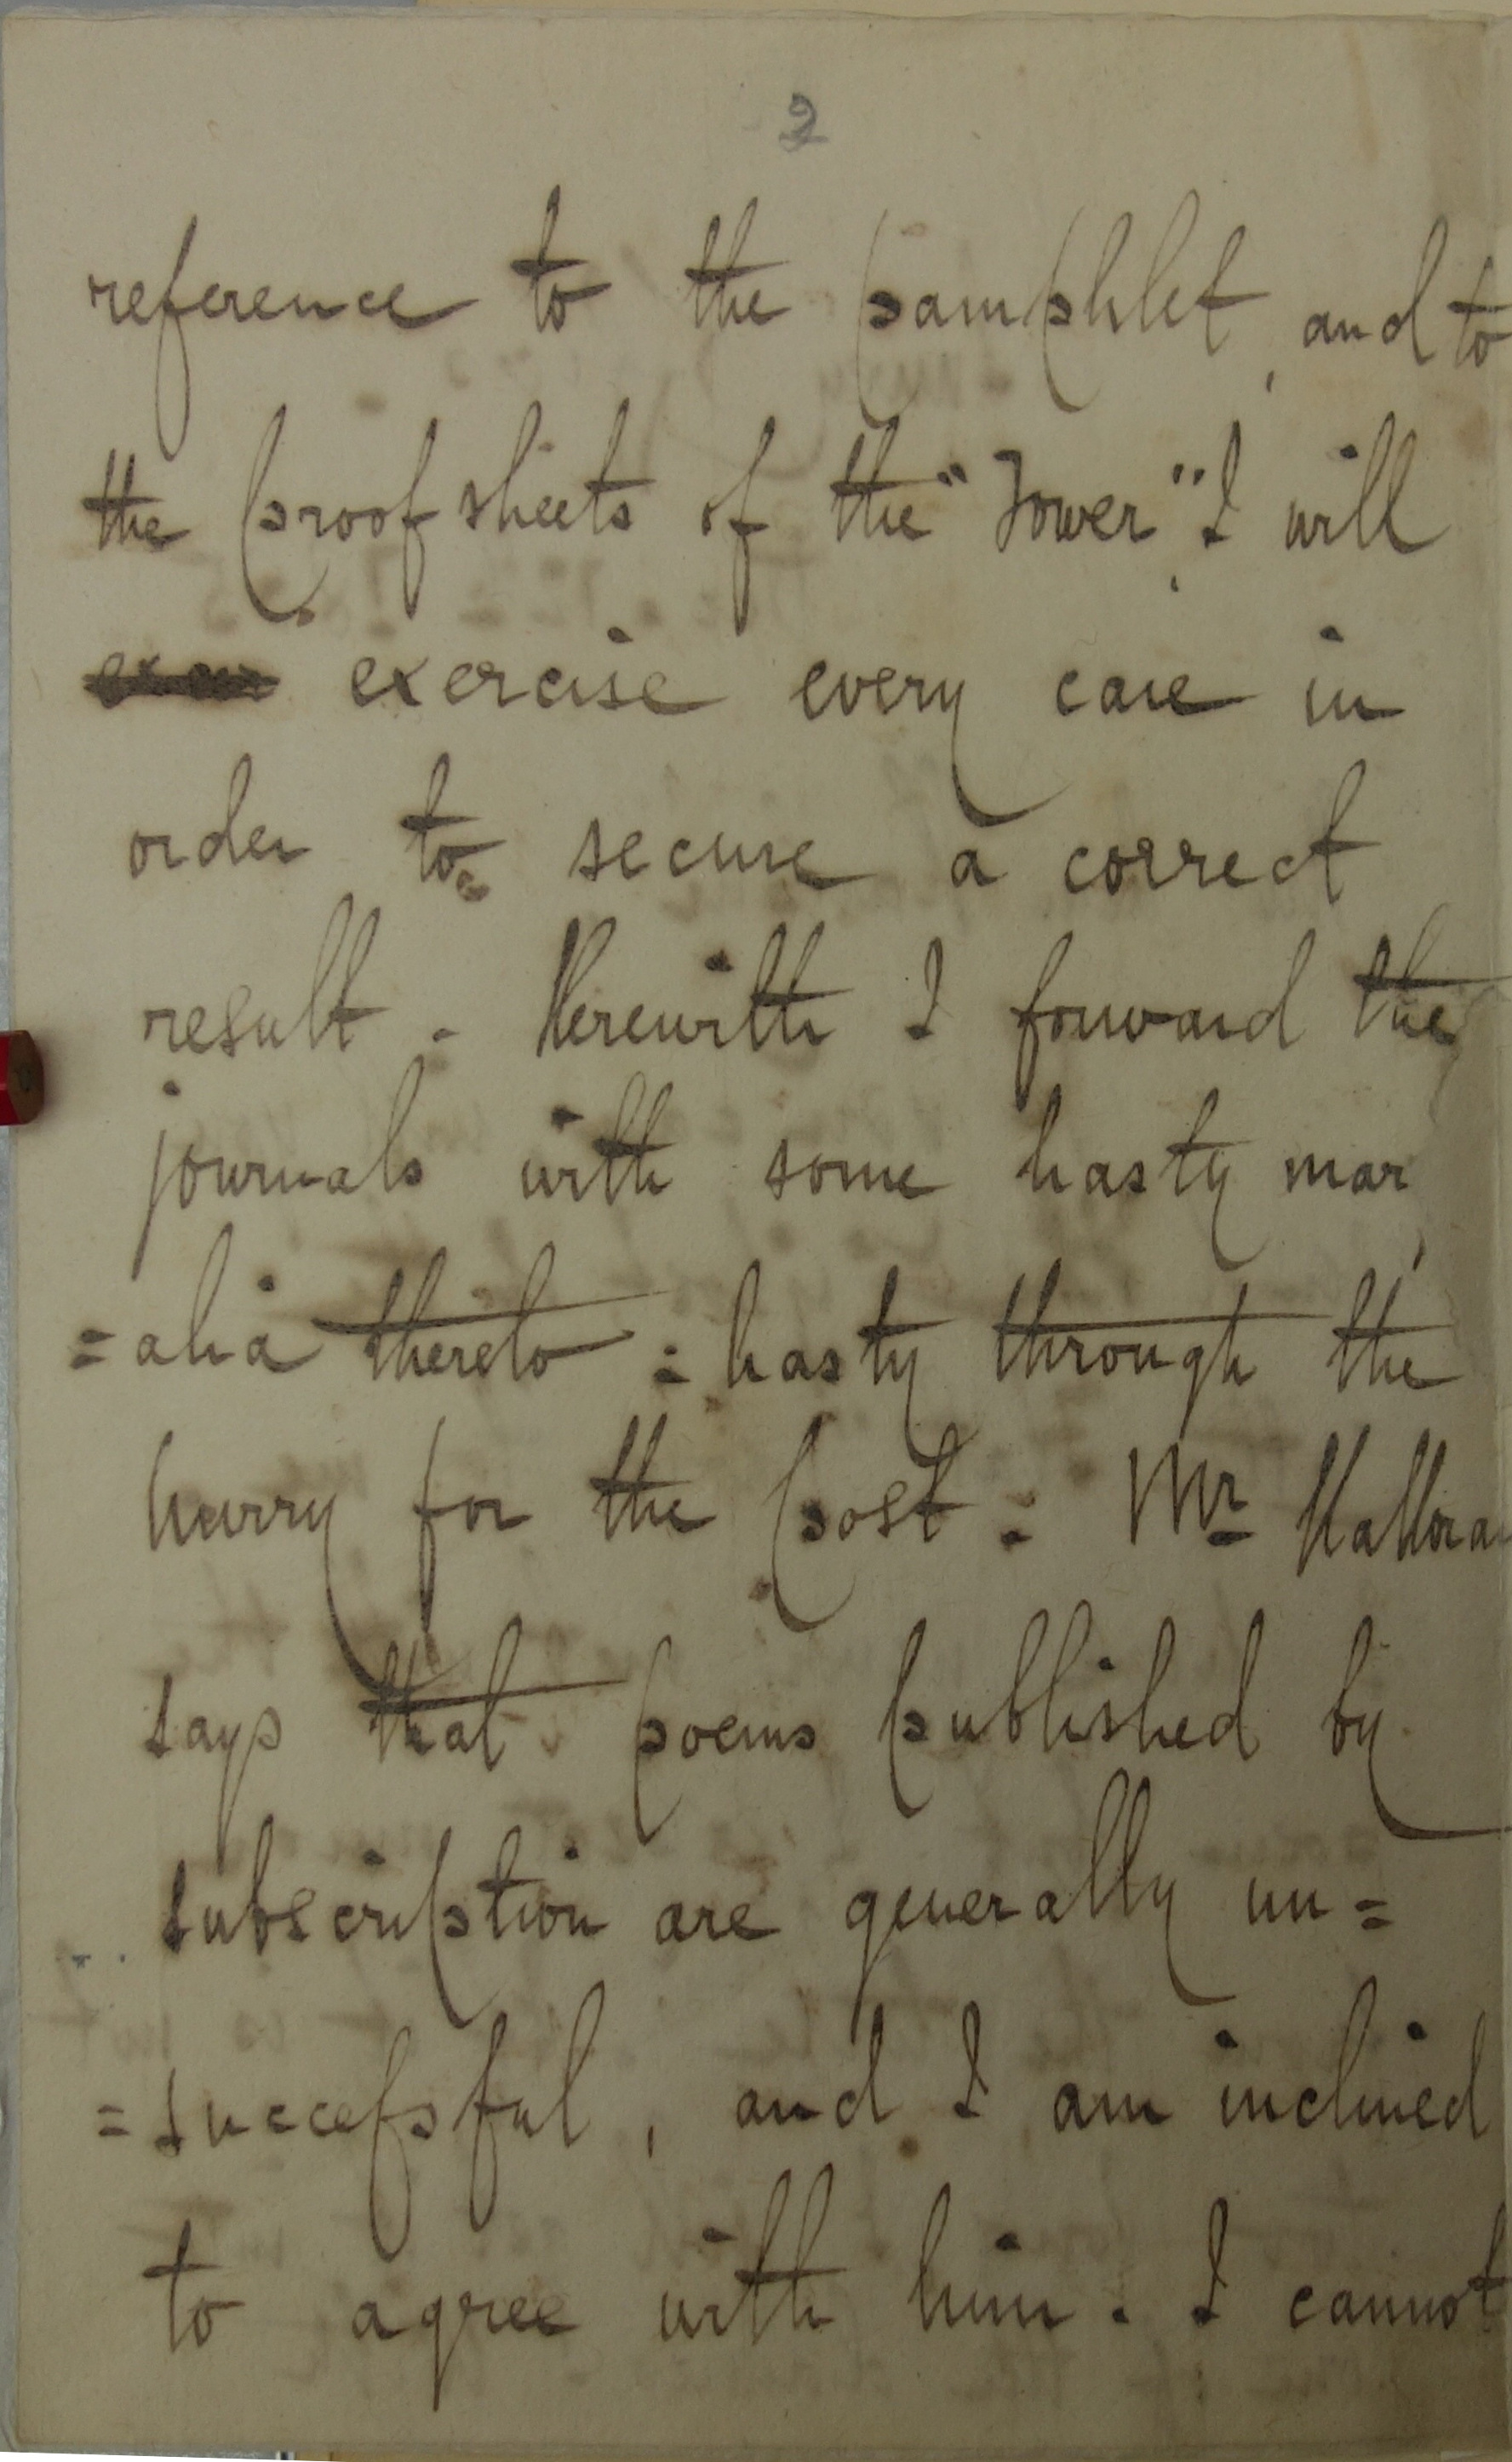 2
reference to the pamphlet, and to
the proof sheets of the "Tower", I will
exercise every care in
order to secure a correct
result. Herewith I forward the
journals with some hasty mar
=alia thereto : hasty through the
hurry for the post : Mr
says that poems published by
subscription are generally un=
=successful, and I am inclined
to agree with him. I cannot